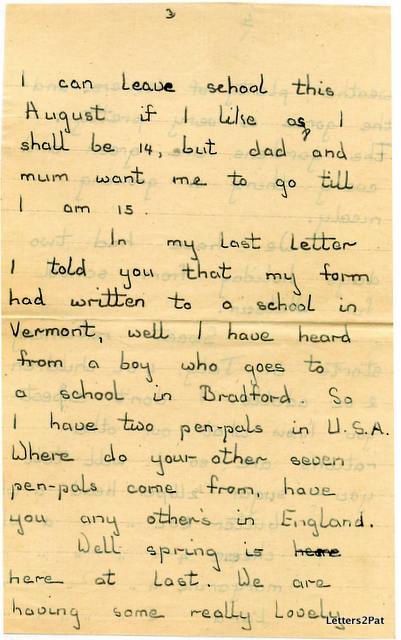 3
I can leave school this
August if I like as I
shall be 14, but dad and
mum want me to go till
I am 15.
In my last letter
I told you that my form
had written to a school in
Vermont, well I have heard
from a boy who goes to
a school in Bradford. So
I have two pen-pals in U.S.A.
Where do your other seven
pen-pals come from, have
you any other's in England.
Well spring is here
here at last. We are
having some really lovely
Letters2Pat